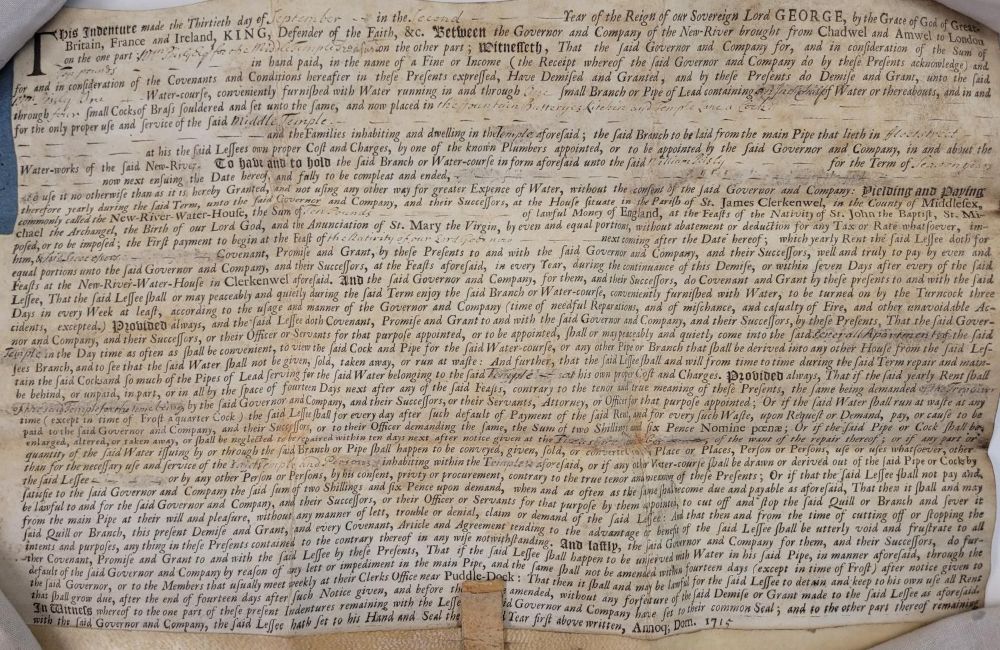 This Indenture made the Thirtieth day of September in the Second Year of the Reign of our Sovereign Lord GEORGE, by the Grace of God of Great-
Britain, France and Ireland, KING, Defender of the Faith, &c. Between the Governor and Company of the New-River brought from Chadwel and Amwel to London
on the one part on the other part; Witnesseth, That the said Governor and Company for, and in consideration of the Sum of
in hand paid, in the name of a Fine or Income (the Receipt whereof the said Governor and Company do by these Presents acknowledge) and
for and in consideration of the Covenants and Conditions hereafter in these Presents expressed, Have Demised and Granted, and by these Presents do Demise and Grant, unto the said
One Water-course, conveniently furnished with Water running in and through One small Branch or Pipe of Lead containing of Water or thereabouts, and in and
through small Cocks of Brass souldered and set unto the same, and now placed in the Fountain Butterys Kitchin and Temple Lane a Cock
for the only proper use and service of the said Middle Temple
and the Families inhabiting and dwelling in the Temple aforesaid; the said Branch to be laid from the main Pipe that lieth in Fleetstreet
at his said Lessees own proper Cost and Charges, by one of the known Plumbers appointed, or to be appointed by the said Governor and Company, in and about the
Water-works of the said New-River. To have and to hold the said Branch or Water-course in form aforesaid unto the said William for the Term of
now next ensuing the Date hereof, and fully to be compleat and ended,
to use it no otherwise than as it is hereby Granted, and not using any other way for greater Expence of Water, without the consent of the said Governor and Company: Yielding and Paying
therefore yearly during the said Term, unto the said Governor and Company, and their Successors, at the House situate in the Parish of St. James Clerkenwel, in the County of Middlesex,
commonly called the New-River-Water-House, the Sum of of lawful Money of England, at the Feasts of the Nativity of St. John the Baptist, St. Mi-
chael the Archangel, the Birth of our Lord God, and the Anunciation of St. Mary the Virgin, by even and equal portions, without abatement or deduction for any Tax or Rate whatsoever, im-
posed, or to be imposed; the First payment to begin at the Feast of the Nativity of our Lord God now next coming after the Date hereof; which yearly Rent the said Lessee doth for
him, & his Successors Covenant, Promise and Grant, by these Presents to and with the said Governor and Company, and their Successors, well and truly to pay by even and
equal portions unto the said Governor and Company, and their Successors, at the Feasts aforesaid, in every Year, during the continuance of this Demise, or within seven Days after every of the said
Feasts at the New-River-Water-House in Clerkenwel aforesaid. And the said Governor and Company, for them, and their Successors, do Covenant and Grant by these presents to and with the said
Lessee, That the said Lessee shall or may peaceably and quietly during the said Term enjoy the said Branch or Water-course, conveniently furnished with Water, to be turned on by the Turncock three
Days in every Week at least, according to the usage and manner of the Governor and Company (time of needful Reparations, and of mischance, and casualty of Fire, and other unavoidable Ac-
cidents, excepted.) Provided always, and the said Lessee doth Covenant, Promise and Grant to and with the said Governor and Company, and their Successors, by these Presents, That the said Gover-
nor and Company, and their Successors, or their Officer or Servants for that purpose appointed, or to be appointed, shall or may peaceably and quietly come into the said Several Apartments of the said
Temple in the Day time as often as shall be convenient, to view the said Cock and Pipe for the said Water-course, or any other Pipe or Branch that shall be derived into any other House from the said Les-
sees Branch, and to see that the said Water shall not be given, sold, taken away, or run at waste: And further, that the said Lessee shall and will from time to time during the said Term repair and main-
tain the said Cocks and so much of the Pipes of Lead serving for the said Water belonging to the said Temple at his own proper Cost and Charges. Provided always, That if the said yearly Rent shall
be behind, or unpaid, in part, or in all by the space of fourteen Days next after any of the said Feasts, contrary to the tenor and true meaning of these Presents, the same being demanded of the Treasurer
of the said Temple for the time being by the said Governor and Company, and their Successors, or their Servants, Attorney, or Officer for that purpose appointed; Or if the said Water shall run at waste at any
time (except in time of Frost a Quarter-Cock) the said Lessee shall for every day after such default of Payment of the said Rent, and for every such Waste, upon Request or Demand, pay, or cause to be
paid to the said Governor and Company, and their Successors, or to their Officer demanding the same, the Sum of two Shillings and six Pence Nomine pœnæ; Or if the said Pipe or Cock shall be
enlarged, altered, or taken away, or shall be neglected to be repaired within ten days next after notice given at the of the want of the repair thereof; or if any part or
quantity of the said Water issuing by or through the said Branch or Pipe shall happen to be conveyed, given, sold, or converted Place or Places, Person or Persons, use or uses whatsoever, other
than for the necessary use and service of the said Temple and Persons inhabiting within the Temple aforesaid, or if any other Water-course shall be drawn or derived out of the said Pipe or Cock by
the said Lessee or by any other Person or Persons, by his consent, privity or procurement, contrary to the true tenor and meaning of these Presents; Or if that the said Lessee shall not pay and
satisfie to the said Governor and Company the said sum of two Shillings and six Pence upon demand, when and as often as the same shall become due and payable as aforesaid, That then it shall and may
be lawful to and for the said Governor and Company, and their Successors, or their Officer or Servants for that purpose by them appointed, to cut off and stop the said Quill or Branch and sever it
from the main Pipe at their will and pleasure, without any manner of lett, trouble or denial, claim or demand of the said Lessee: And that then and from the time of cutting off or stopping the
said Quill or Branch, this present Demise and Grant, and every Covenant, Article and Agreement tending to the advantage or benefit of the said Lessee shall be utterly void and frustrate to all
intents and purposes, any thing in these Presents contained to the contrary thereof in any wise notwithstanding. And lastly, the said Governor and Company for them, and their Successors, do fur-
ther Covenant, Promise and Grant to and with the said Lessee by these Presents, That if the said Lessee shall happen to be unserved with Water in his said Pipe, in manner aforesaid, through the
default of the said Governor and Company by reason of any lett or impediment in the main Pipe, and the same shall not be amended within fourteen days (except in time of Frost) after notice given to
the said Governor, or to the Members that usually meet weekly at their Clerks Office near Puddle-Dock: That then it shall and may be lawful for the said Lessee to detain and keep to his own use all Rent
that shall grow due, after the end of fourteen days after such Notice given, and before the amended, without any forfeiture of the said Demise or Grant made to the said Lessee as aforesaid.
In Witness whereof to the one part of these present Indentures remaining with the Lessee said Governor and Company have set to their common Seal; and to the other part thereof remaining
with the said Governor and Company, the said Lessee hath set to his Hand and Seal the Year first above written, Annoq; Dom. 1715